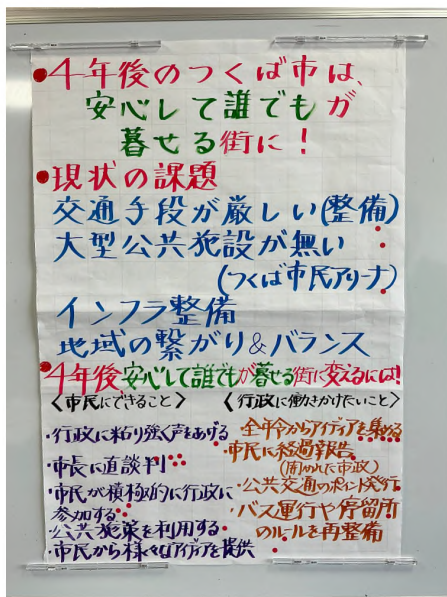 4年後のつくば市は、
安心して誰でもが
暮せる街に！
現状の課題
交通手段が厳しい(整備)
大型公共施設が無い
(つくば市民アリーナ)
インフラ整備
地域の繋がり&バランス
4年後安心して誰でもが暮せる街に変えるには!
〈市民にできること〉
・行政に粘り強く声をあげる
・市長に直談判
・市民が積極的に行政に
参加する
・公共施策を利用する
・市民から様々なアイディアを提供
〈行政に働きかけたいこと〉
からアイディアを集める
・市民に経過報告
(開かれた市政)
・公共交通のポイント発行
・バス運行や停留所
のルールを再整備